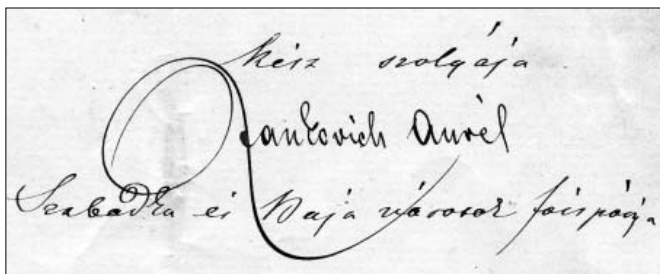 kész szolgája
Jankovich Aurél
Szabadka és Baja városok főispánja